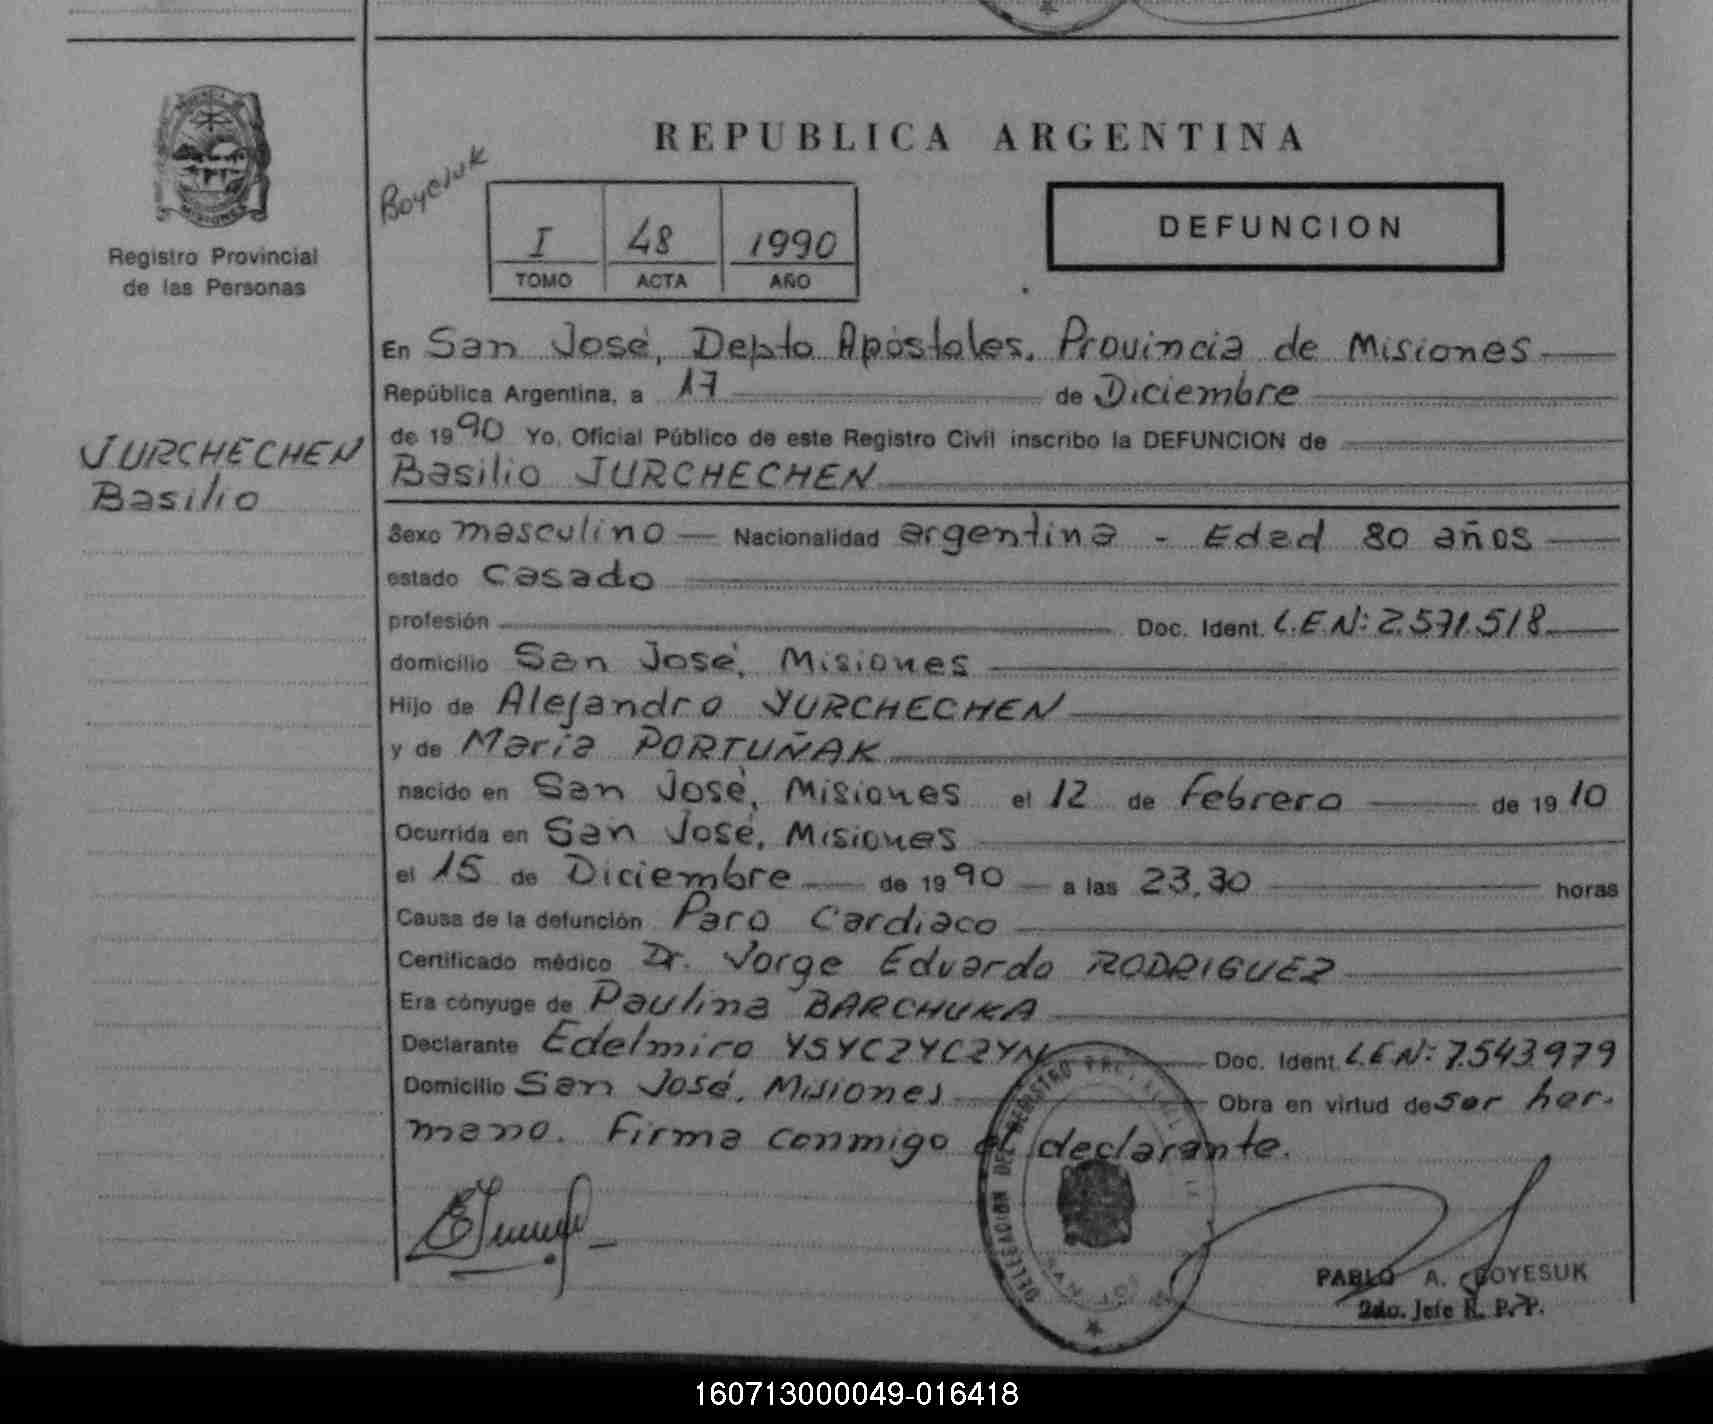 REPUBLICA ARGENTINA
MISIONES
Registro Provincial
de las Personas
I 48 1990
TOMO ACTA AÑO
DEFUNCION
En San José, Depto Apóstoles. Provincia de Misiones
República Argentina, a 17 de Diciembre
de 1990 Yo, Oficial Público de este Registro Civil inscribo la DEFUNCION de
Basilio JURCHECHEN
JURCHECHEN
Basilio
Sexo masculino Nacionalidad argentina - Edad 80 años
estado Casado
profesión Doc. Ident. L.E.N: 2.571.518
domicilio San José, Misiones
Hijo de Alejandro YURCHECHEN
y de María PORTUÑAK
nacido en San José, Misiones el 12 de Febrero de 1910
Ocurrida en San José, Misiones
el 15 de Diciembre de 1990 a las 23,30 horas
Causa de la defunción Paro Cardiaco
Certificado médico Dr. Jorge Eduardo RODRIGUEZ
Era cónyuge de Paulina BARCHUKA
Declarante Edelmiro YSYCZYCZYN Doc. Ident. L.E.N: 7.543.979
Domicilio San José, Misiones Obra en virtud de ser her-
mano. Firma conmigo el declarante.
DELEGACION DEL REGISTRO
PABLO A. BOYESUK
2do. Jefe R. P. P.
160713000049-016418